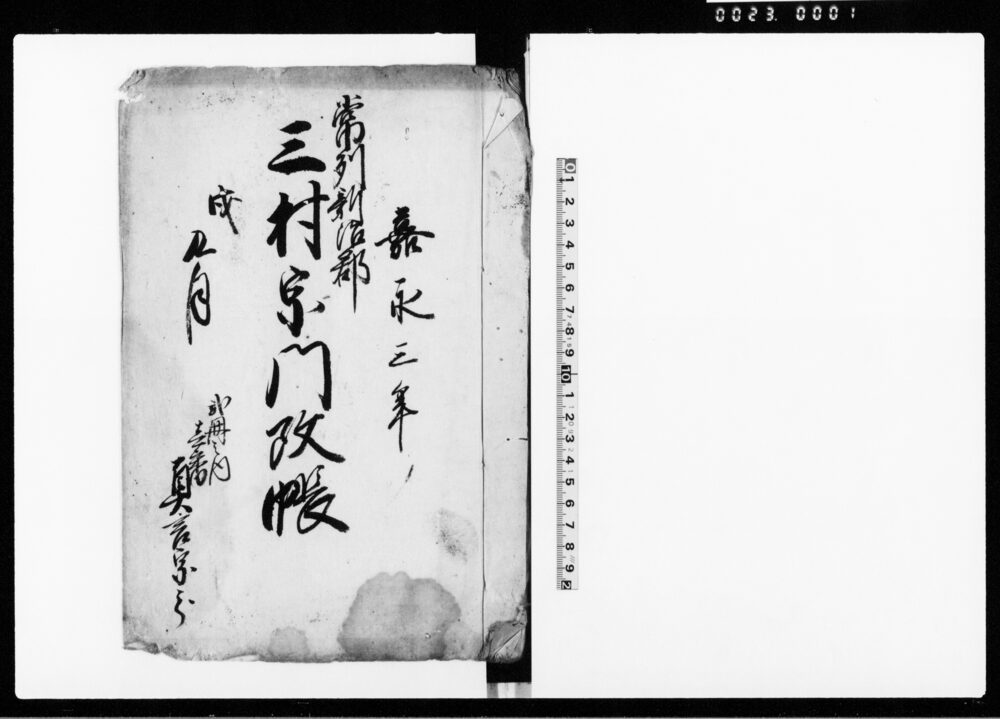 0023. 0001
嘉永三年
常州新治郡
三村宗門改帳
戌九月
弐冊之内
壱番
真言宗分
0 1 2 3 4 5 6 7 8 9 10 1 2 3 4 5 6 7 8 9 2